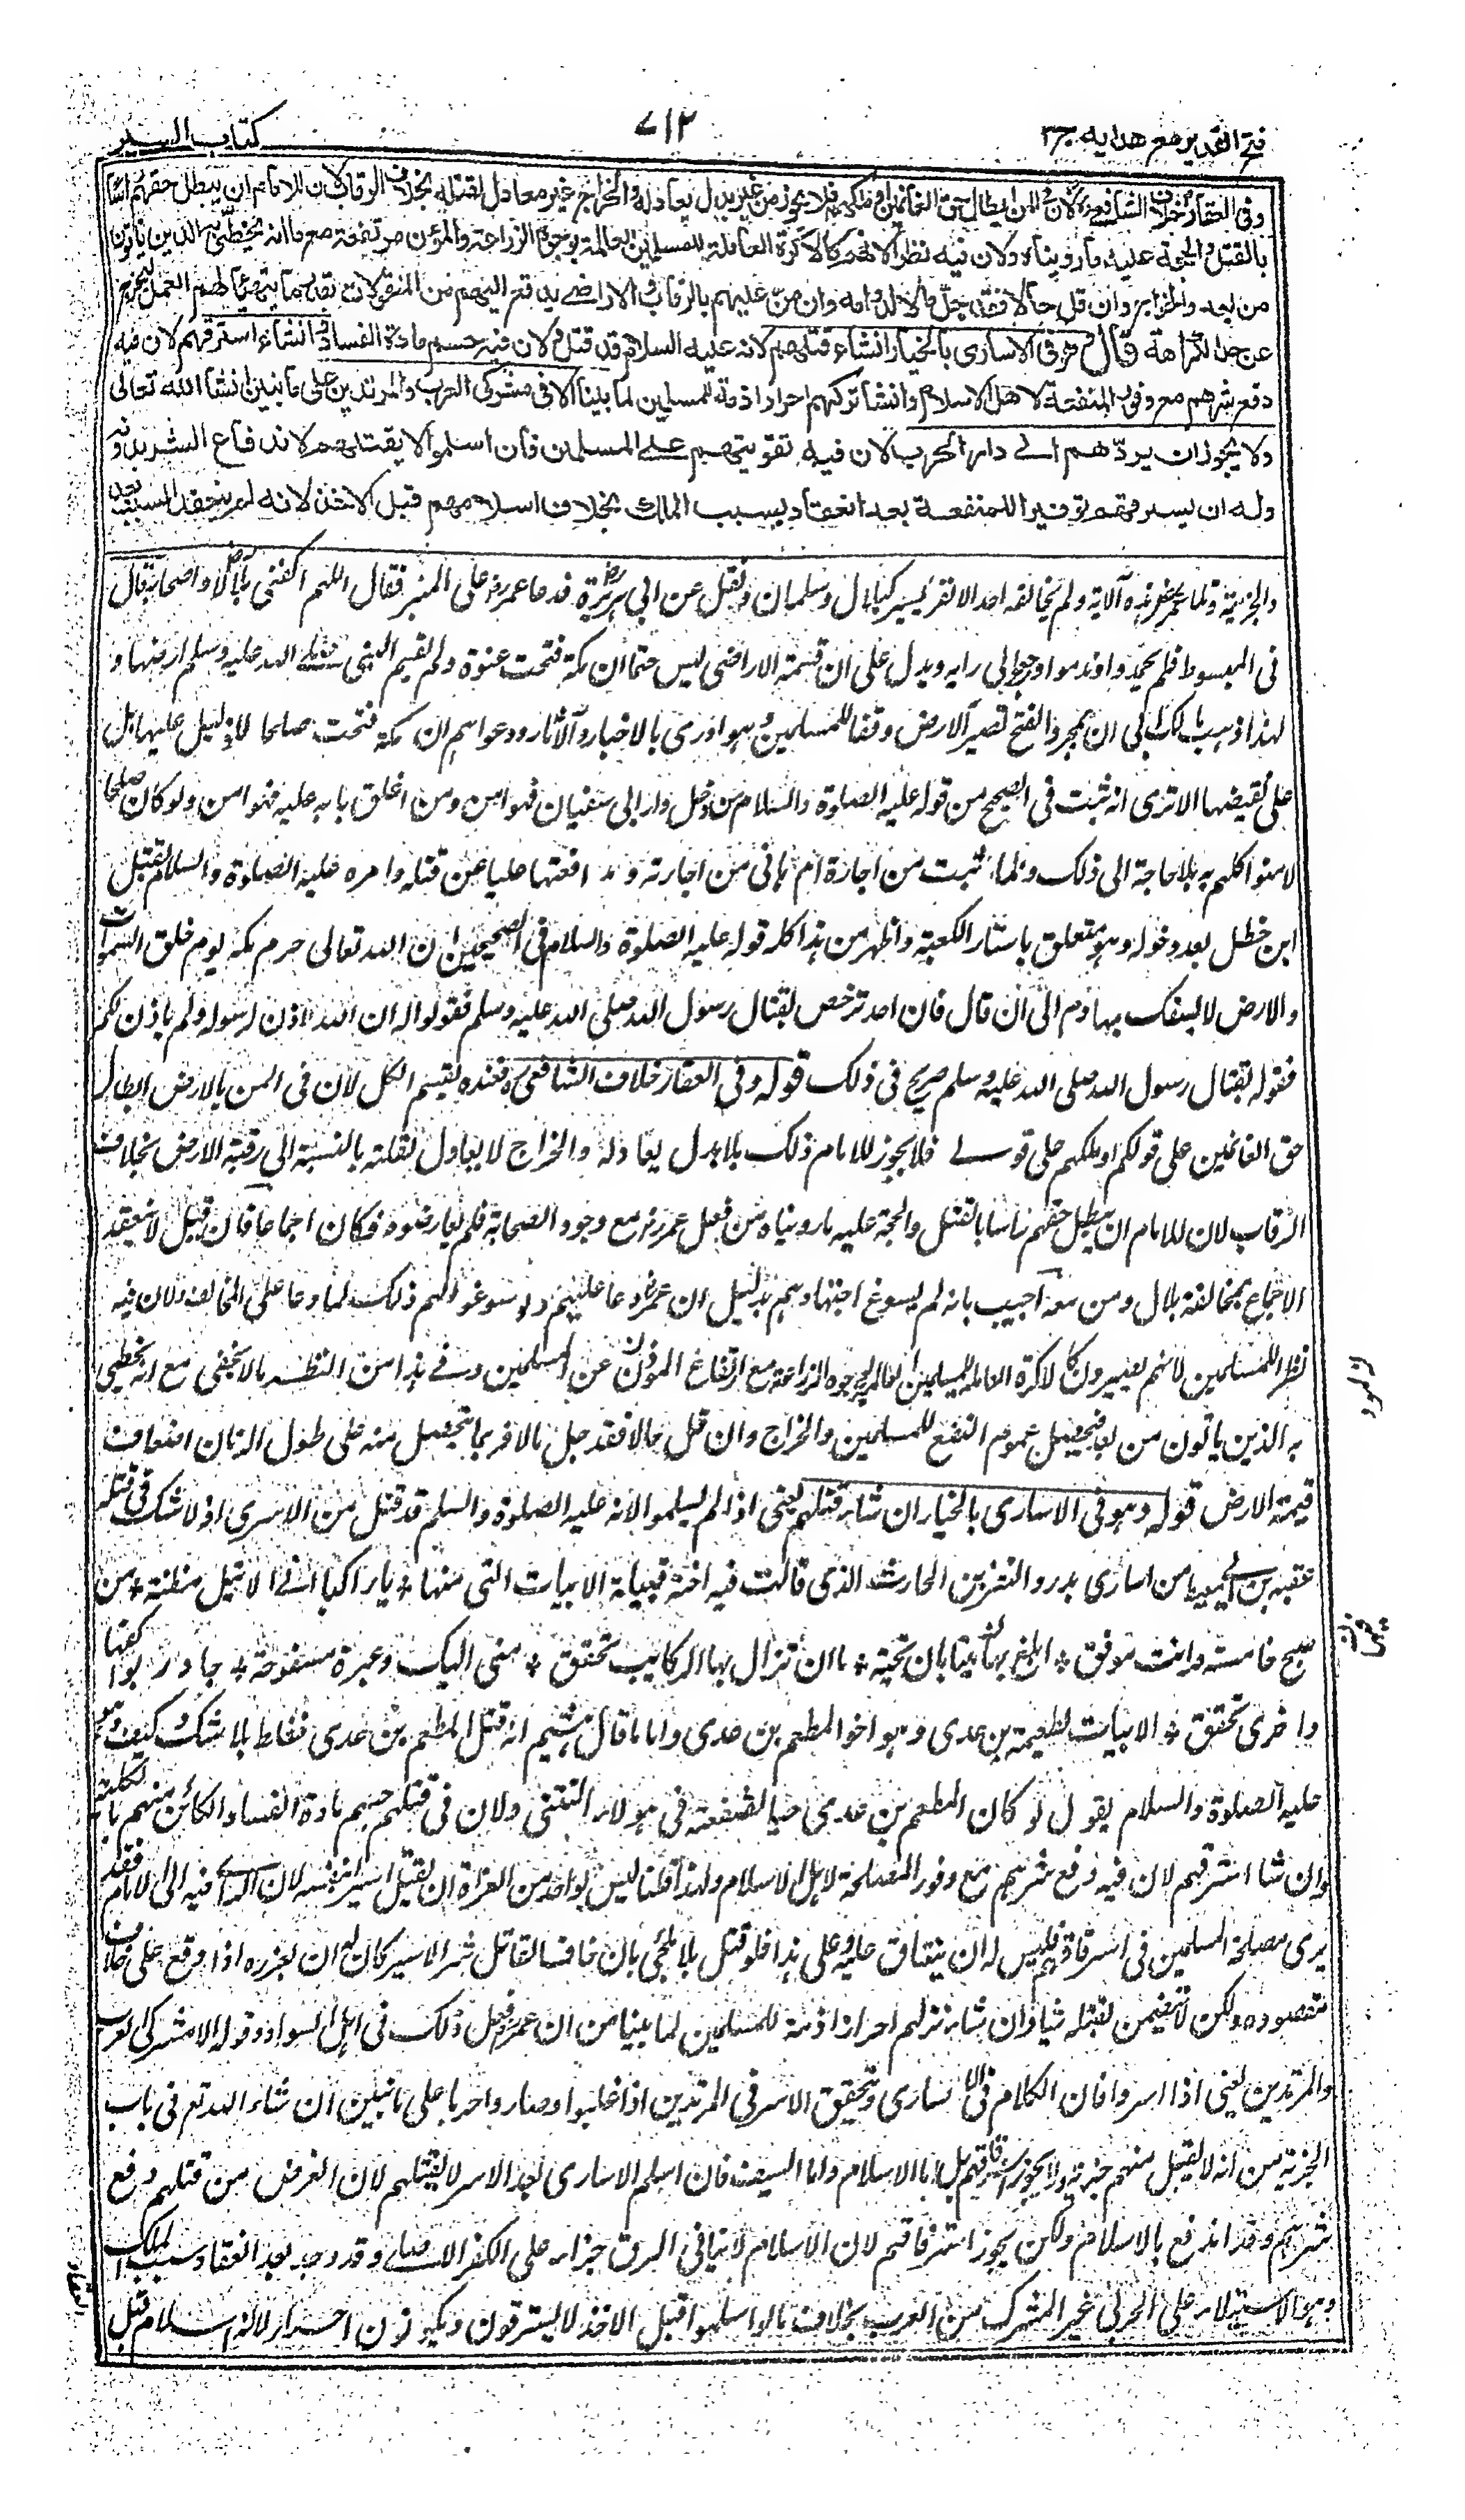 فتح القدير مع هدايه ج ٣
٧١٢
كتاب السير
وفى العقار خلاف الشافعى لان فى المن ابطال حق الغانمين او ملكهم فلا يجوز من غير بدل يعادله والخراج غير معادل لقتله بخلاف الرقاب لان للامام ان يبطل حقهم راسا
بالقتل والحجة عليه ما رويناه ولان فيه نظرا لانهم كالاكرة العاملة للمسلمين العالمة بوجوه الزراعة والمؤن مرتفعة مع ما انه يحظى به الذين ياتون
من بعد والخراج وان قل حالا فقد جل مالا لدوامه وان من عليهم بالرقاب والاراضى يدفع اليهم من المنقولات بقدر ما يتهيأ لهم العمل ليخرج
عن حد الكراهة قال وهو فى الاسارى بالخيار ان شاء قتلهم لانه عليه السلام قد قتل ولان فيه حسم مادة الفساد وان شاء استرقهم لان فيه
دفع شرهم مع وفور المنفعة لاهل الاسلام وان شاء تركهم احرارا ذمة للمسلمين لما بينا الا فى مشركى العرب والمرتدين على ما نبين ان شاء الله تعالى
ولا يجوز ان يردهم الى دار الحرب لان فيه تقويتهم على المسلمين فان اسلموا لا يقتلهم لاندفاع الشر بدونه
وله ان يسترقهم توفيرا للمنفعة بعد انعقاد سبب الملك بخلاف اسلامهم قبل الاخذ لانه لم ينعقد السبب بعد
والجزية وتلا عمر هذه الآية ولم يخالفه احد الا نفر يسير كبلال وسلمان ونقل عن ابى هريرة فدعا عمر رض على المنبر فقال اللهم اكفنى بلالا واصحابه قال
فى المبسوط فلم يحمدوا وندموا ورجعوا الى رايه ويدل على ان قسمة الاراضى ليس حتما ان مكة فتحت عنوة ولم يقسم النبى صلى الله عليه وسلم ارضها و
لهذا ذهب مالك الى ان بمجرد الفتح تصير الارض وقفا للمسلمين وهو ادرى بالاخبار والآثار ودعواهم ان مكة فتحت صلحا لا دليل عليها بل
على نقيضها الا ترى انه ثبت فى الصحيح من قوله عليه الصلوة والسلام من دخل دار ابى سفيان فهو امن ومن اغلق بابه عليه فهو امن ولو كان صلحا
لامنوا كلهم به بلا حاجة الى ذلك ولما ثبت من اجارة ام هانى من اجارته ومدافعتها عليا عن قتله وامره عليه الصلوة والسلام بقتل
ابن خطل بعد دخوله وهو متعلق باستار الكعبة واظهر من هذا كله قوله عليه الصلوة والسلام فى الصحيحين ان الله تعالى حرم مكة يوم خلق السموات
والارض لا يسفك بها دم الى ان قال فان احد ترخص بقتال رسول الله صلى الله عليه وسلم فقولوا له ان الله اذن لرسوله ولم ياذن لكم
فقوله بقتال رسول الله صلى الله عليه وسلم صريح فى ذلك قوله وفى العقار خلاف الشافعى فعنده يقسم الكل لان فى المن بالارض ابطال
حق الغانمين على قولكم او ملكهم على قولى فلا يجوز للامام ذلك بلا بدل يعادله والخراج لا يعادل لقلته بالنسبة الى رقبة الارض بخلاف
الرقاب لان للامام ان يبطل حقهم راسا بالقتل والحجة عليه ما رويناه من فعل عمر رض مع وجود الصحابة فلم يعارضوه فكان اجماعا فان قيل لا ينعقد
الاجماع بمخالفة بلال ومن معه اجيب بانه لم يسوغ اجتهادهم بدليل ان عمر رض دعا عليهم ولو سوغوا لهم ذلك لما دعا على المخالف ولان فيه
نظرا للمسلمين لانهم يصيرون كالاكرة العاملة للمسلمين العالمة بوجوه الزراعة مع ارتفاع المؤن عن المسلمين وفى هذا من النظر ما لا يخفى مع انه يحظى
به الذين ياتون من بعد فيحصل عموم النفع للمسلمين والخراج وان قل حالا فقد جل مالا فربما يتحصل منه على طول الزمان اضعاف
قيمة الارض قوله وهو فى الاسارى بالخيار ان شاء قتلهم يعنى اذا لم يسلموا لانه عليه الصلوة والسلم قد قتل من الاسرى اذ لا شك فى قتله
عقبة بن ابى معيط من اسارى بدر والنضر بن الحارث الذى قالت فيه اخته قتيلة الابيات التى منها * يا راكبا ان الاثيل مظنة * من
صبح خامسة وانت موفق * ابلغ بها ميتا بان تحية * ما ان تزال بها الركايب تخفق * منى اليك وعبرة مسفوحة * جادت بواكفها
واخرى تخفق * الابيات لطعيمة بن عدى وهو اخو المطعم بن عدى واما ما قال هشيم انه قتل المطعم بن عدى فغلط بلا شك وكيف وهو
عليه الصلوة والسلام يقول لو كان المطعم بن عدى حيا لشفعته فى هولاء النتنى ولان فى قتلهم حسم مادة الفساد الكائن منهم بالكلية
وان شاء استرقهم لان فيه دفع شرهم مع وفور المصلحة لاهل الاسلام ولهذا قلنا ليس لواحد من الغزاة ان يقتل اسيرا بنفسه لان الراى فيه الى الامام فقد
يرى مصلحة المسلمين فى استرقاقهم فليس له ان يفتات عليه وعلى هذا فلو قتل بلا ملجئ بان خاف القاتل شر الاسير كان له ان يعزره اذا وقع على خلاف
مقصوده ولكن لا يضمن بقتله شيئا وان شاء تركهم احرارا ذمة للمسلمين لما بينا من ان عمر رض فعل ذلك فى اهل السواد وقوله الا مشركى العرب
والمرتدين يعنى اذا اسروا فان الكلام فى الاسارى ويتحقق الاسر فى المرتدين اذا غلبوا وصاروا حربا على ما نبين ان شاء الله تعم فى باب
الجزية من انه لا يقبل منهم جزية ولا يجوز استرقاقهم بل اما الاسلام واما السيف فان اسلم الاسارى بعد الاسر لا يقتلهم لان الغرض من قتلهم دفع
شرهم وقد اندفع بالاسلام ولكن يجوز استرقاقهم لان الاسلام لا ينافى الرق جزاء على الكفر الاصلى وقد وجد بعد انعقاد سبب الملك
وهو الاستيلاء على الحربى غير المشرك من العرب بخلاف ما لو اسلموا قبل الاخذ لا يسترقون ويكونون احرارا لانه اسلام قبل